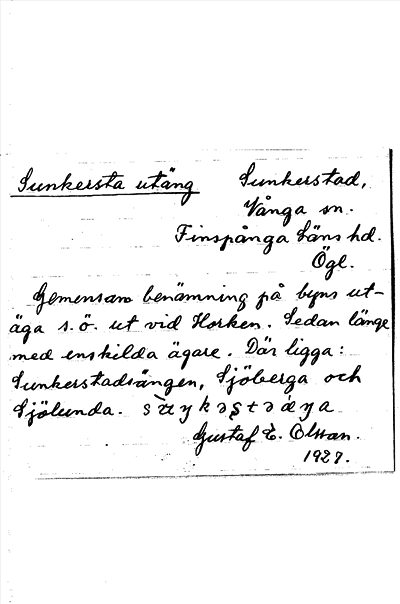 Sunkersta utäng Sunkerstad,
Vånga sn.
Finspånga läns hd.
Ögl.
Gemensam benämning på byns ut-
äga s.ö. ut vid Horken. Sedan länge
med enskilda ägare. Där ligga:
Sunkerstadsängen, Sjöberga och
Sjölunda.
Gustaf E. Olsson.
1927.